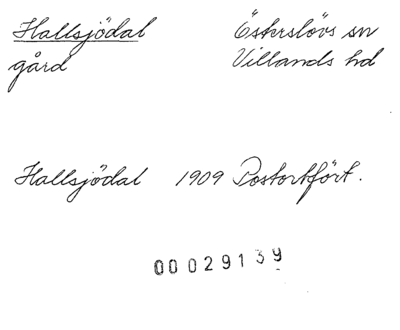 Hallsjödal Öskrslövs sn
gård Villands hd
Hallsjödal 1909 Postortfört.
00029139